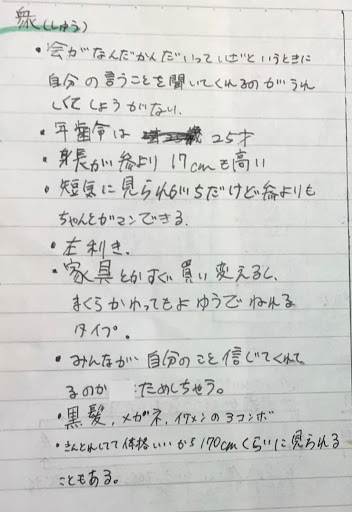 衆(しゅう)
・会がなんだかんだいっていざというときに
自分の言うことを聞いてくれるのがうれ
しくてしょうがない.
・年齢は 25才
・身長が参より17cmも高い
・短気に見られがちだけど参よりも
ちゃんとガマンできる.
・左利き.
・家具とかすぐ買い変えるし、
まくらかわってもよゆうでねれる
タイプ。
・みんなが自分のこと信じてくれて
るのか ためしちゃう。
・黒髪,メガネ,イケメンの3コンボ
・きんとれしてて体格いいから170cmくらいに見られる
こともある。